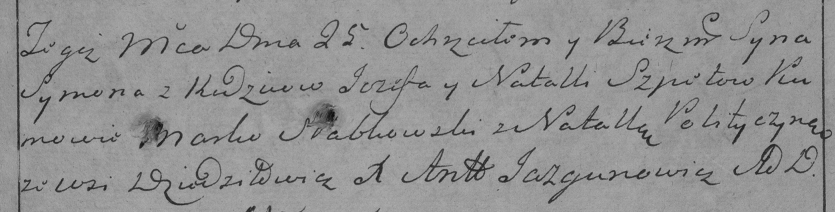 Tegoż Mca Dnia 25. Ochrciłem y Bierzm Syna
Symona z Kudzinow Jozefa y Natalli Szpetow Ku
mowie Marko Slabkowski z Natallą Polityczyną
ze wsi Dziedziłowicz X Antt Jazgunowicz AD D.